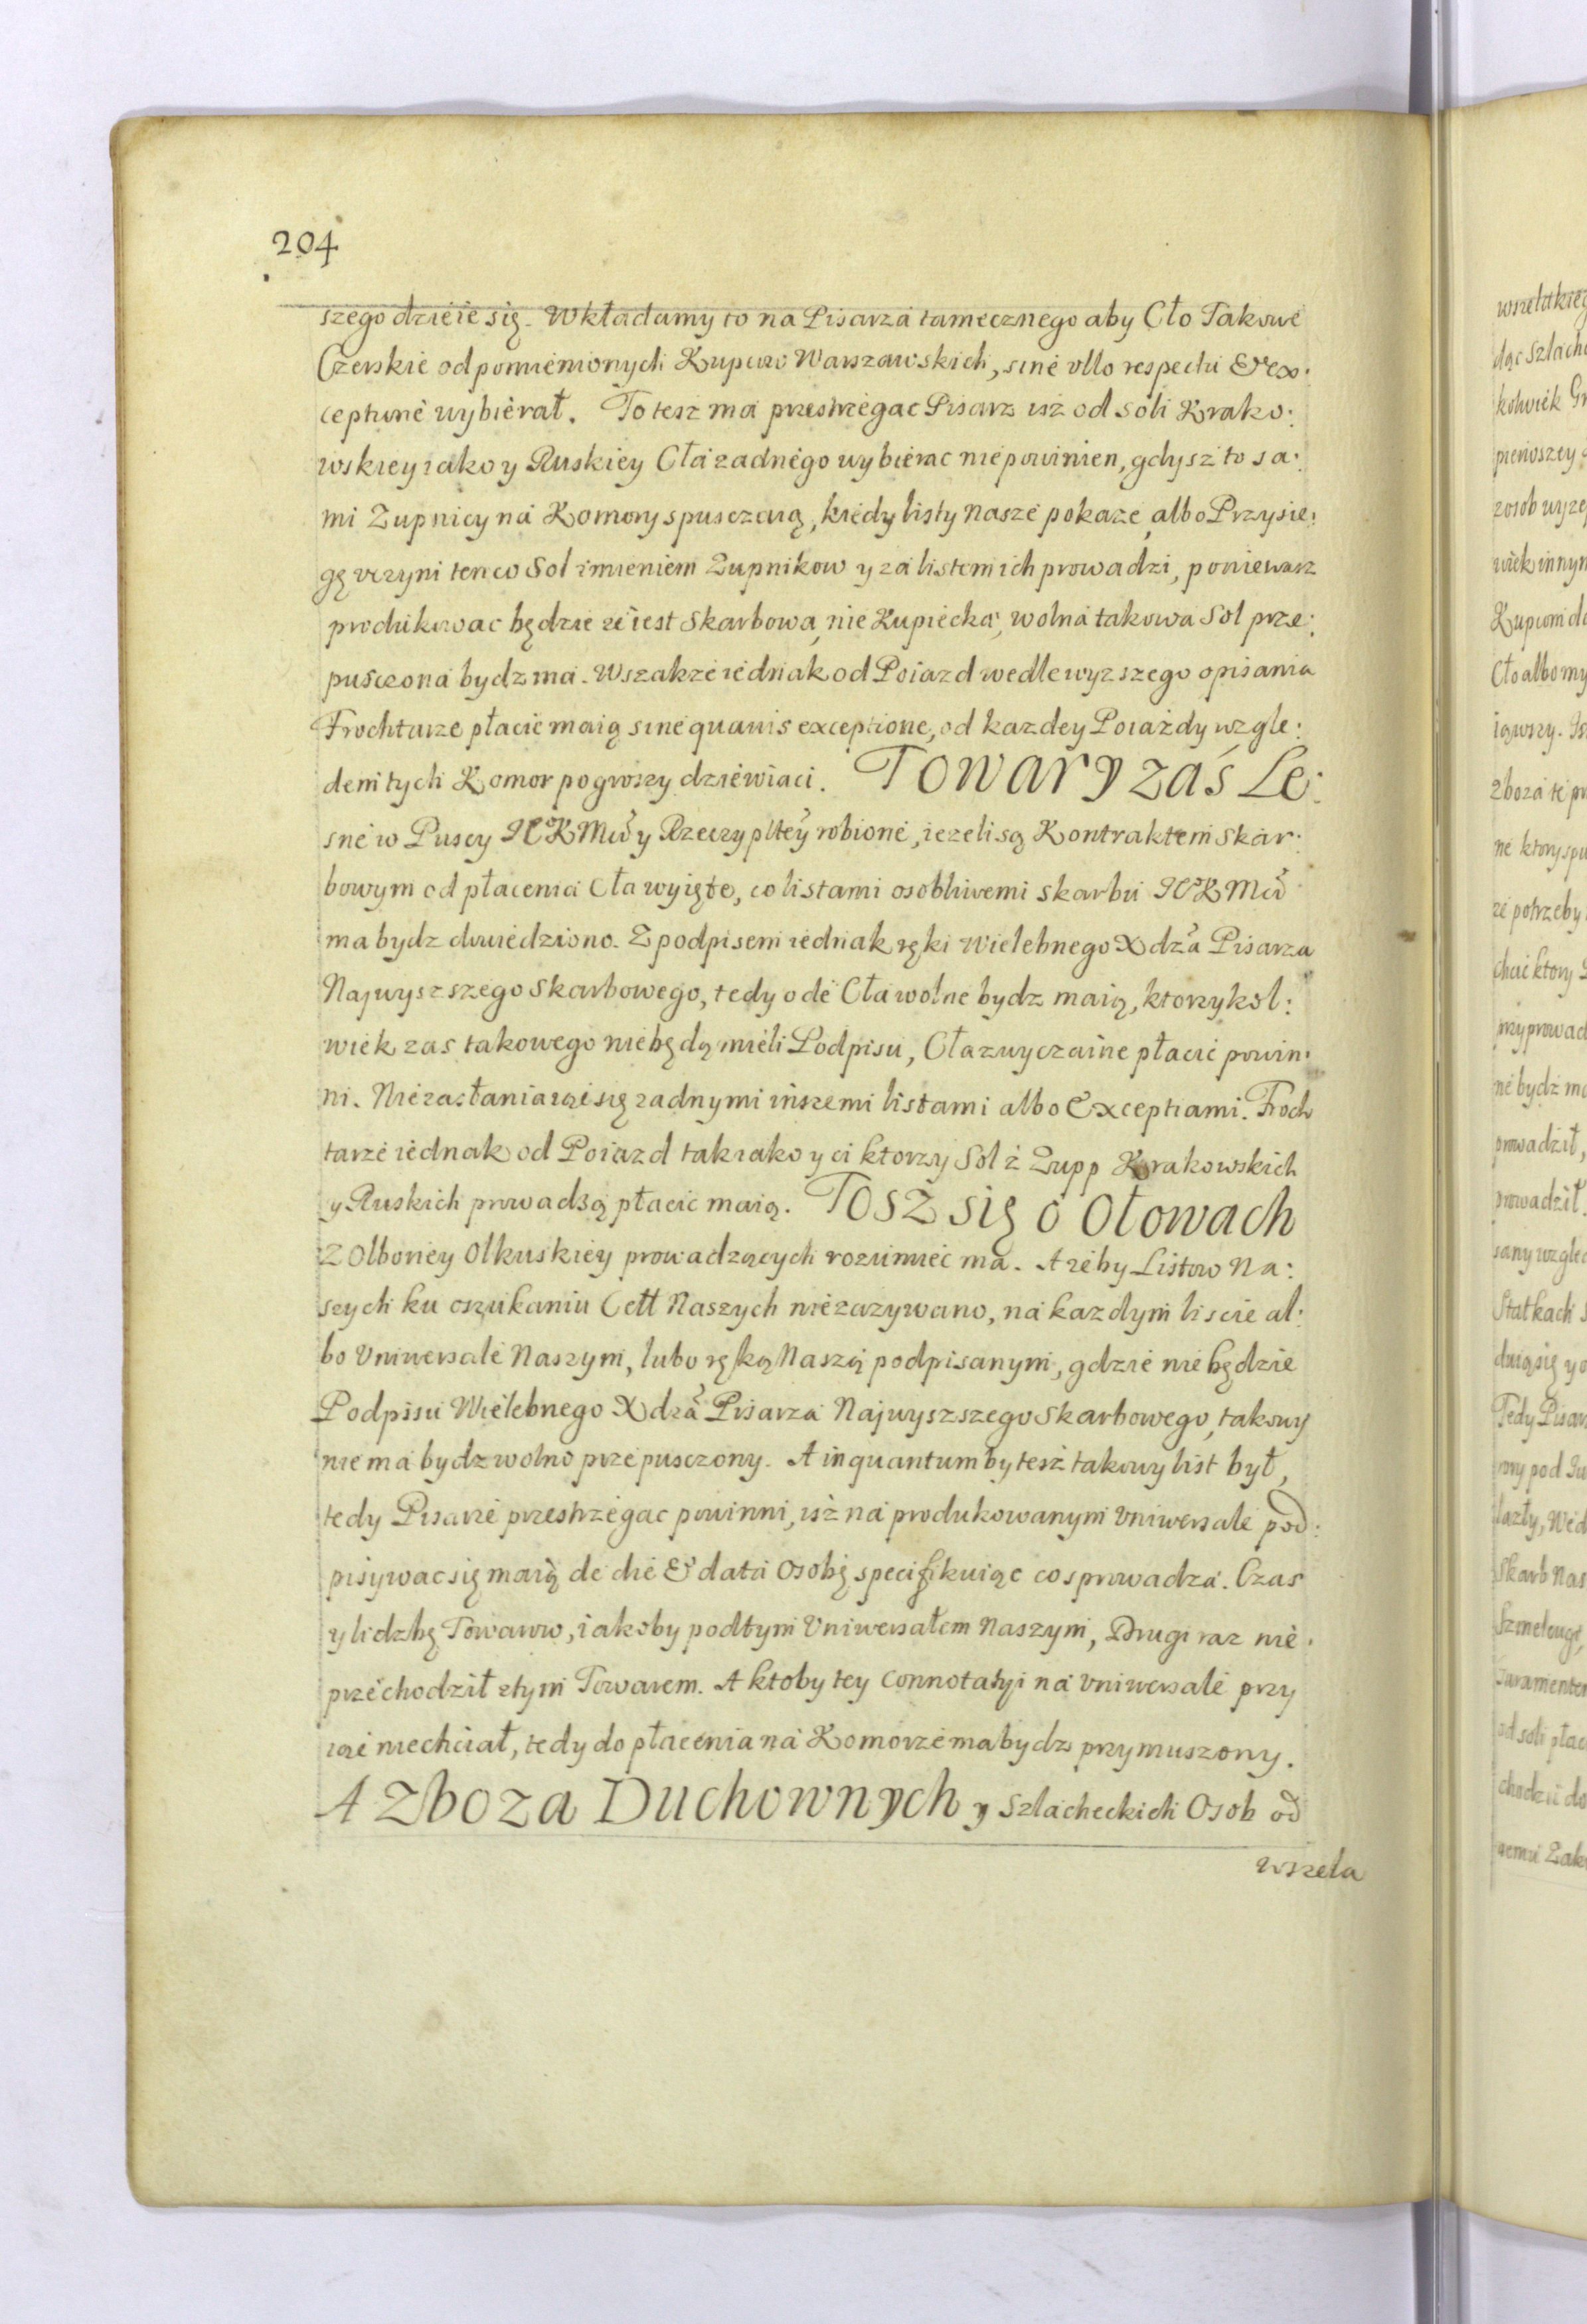 204
szego dzieie się. Wkładamy to na Pisarza tamecznego aby Cło Takowe
Czerskie od pomienionych Kupców Warszawskich, sine ullo respectu & ex:
ceptione wybierał. To tesz ma przestrzegac Pisarz isz od Soli Krako:
wskiey iako y Ruskiey Cła zadnego wybierac niepowinien, gdysz to sa:
mi Zupnicy na Komory spusczaią, kiedy listy nasze pokaze, albo Przysie:
gę vczyni ten co Sol imieniem Zupnikow y za listem ich prowadzi, poniewasz
produkowac będzie ze iest Skarbowa, nie Kupiecka, wolna takowa Sol prze:
pusczona bydz ma. Wszakze iednak od Poiazd wedle wyzszego opisania
Frochtarze płacić maią sine quavis exceptione, od kazdey Poiazdy wzgle:
dem tych Komor po groszy dziewiaci. Towary zaś Le:
sne w Puscy JEKMći y Rzeczypltey robione, iezeli są Kontraktem Skar:
bowym od płacenia Cła wyięte, co listami osobliwemi skarbu JEKMći
ma bydz dowiedziono. Z podpisem iednak ręki Wielebnego Xdza Pisarza
Najwyszszego Skarbowego, tedy ode Cła wolne bydz maią, ktorzykol:
wiek zas takowego niebędą mieli Podpisu, Cła zwyczaine płacić powin:
ni. Niezasłaniaiąc się zadnymi inszemi listami albo Exceptiami. Froch
tarze iednak od Poiazd tak iako y ci ktorzy Sol z Zupp Krakowskich
y Ruskich prowadzą płacic maią. Tosz się o Ołowach
z Olboney Olkuskiey prowadzących rozumiec ma. A zeby Listow Na:
szych ku oszukaniu Cełł Naszych niezazywano, na kazdym liscie al:
bo Vniwersale Naszym, lubo ręką Naszą podpisanym, gdzie nie będzie
Podpisu Wielebnego Xdza Pisarza Najwyszszego Skarbowego, takowy
nie ma bydz wolno przepusczony. A in quantum by tesz takowy list był,
tedy Pisarze przestrzegac powinni, isz na produkowanym Vniwersale pod:
pisywac się maią de die & data Osobę specifikuiąc co prowadza. Czas
y lidzbę Towarow, iakoby pod tym Vniwersałem Naszym, Drugi raz nie:
przechodził z tym Towarem. A ktoby tey Connotatyi na Vniwersale przy
iąc niechciał, tedy do płacenia na Komorze ma bydz przymuszony.
A Zboza Duchownych y Szlacheckich Osob od
wszela
wszelakieg
dąc Szlach
kolwiek Gr
pierwszey
z osob wyze
wiek innym
Kupcom
Cło albo my
iąwszy.
Zboza te
ne ktory
ze potrzeby
chać ktory
przyprowad
ne bydz ma
prowadził,
prowadził.
sany wzgle
Statkach
się y
Tedy Pisar
pod
Wed
Skarb Nas
od soli płac
chodzic do